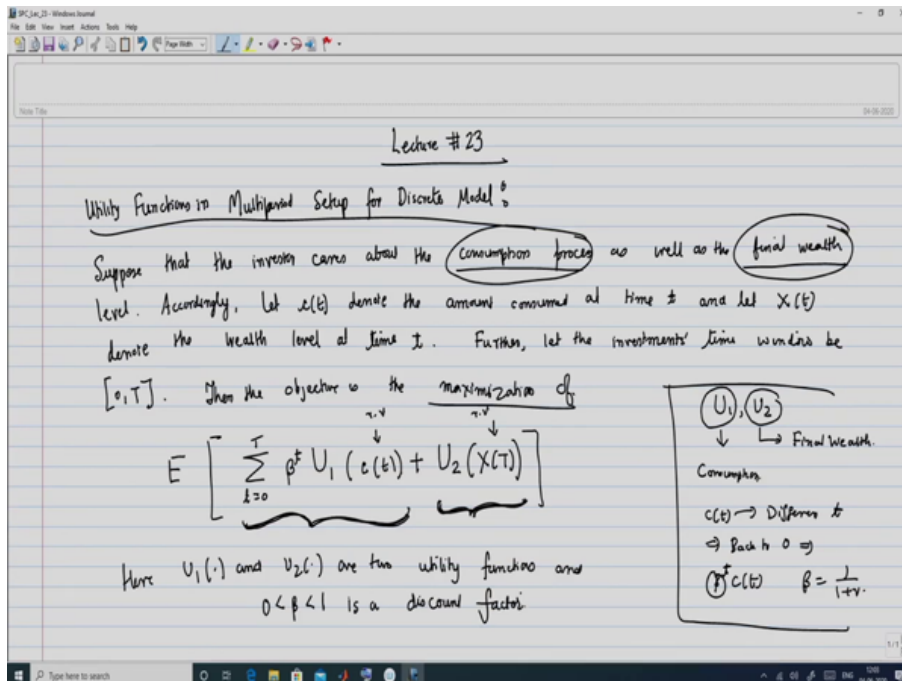 SPC_Lec_23 - Windows Journal
File Edit View Insert Actions Tools Help
Page Width
Note Title
04-06-2020
Lecture #23
Utility Functions in Multiperiod Setup for Discrete Model :
Suppose that the investor cares about the consumption process as well as the final wealth
level. Accordingly, let c(t) denote the amount consumed at time t and let X(t)
denote the wealth level at time t. Further, let the investments' time window be
[0,T]. Then the objective is the maximization of
r.v r.v
E [ T ∑ t=0 β^t U1 (c(t)) + U2 (X(T)) ]
Here U1(·) and U2(·) are two utility functions and
0<β<1 is a discount factor
U1, U2
↓ ↳ Final Wealth.
Consumption
c(t) → Different t
⇒ Back to 0 ⇒
β^t c(t) β = 1/(1+r).
1/1
Type here to search
ENG
12:05
04-06-2020